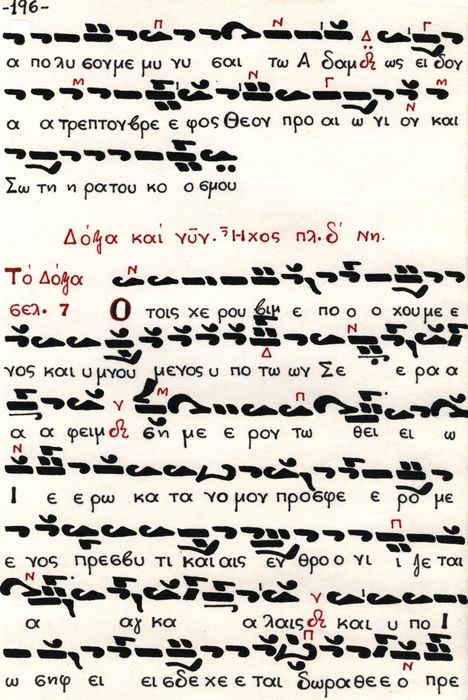 -196-
Π Ν Δ Γ
α πολυ σουμε μυ γυ σαι τω Α δαμ ως ει δον
Μ Ν Γ Ν Μ
α α τρεπτον βρε ε φος Θεον προ αι ω νι ον και
Σω τη η ρα του κο ο σμου
Δόξα καί νῦν. Ἦχος πλ. δ' Νη.
Τό Δόξα Ν
σελ. 7 Ο τοις χε ρου βιμ ε πο ο ο χου με ε
Δ Ν
νος και υ μνου μενος υ πο τω ων Σε ε ρα α
ν Μ Π
α α φειμ ση με ε ρον τω θει ει ω
Ν
Ι ε ε ρω κα τα νο μον προσφε ε ρο με
Π
ε νος πρεσβυ τι και αις εν θρο ο νι ι ζε ται
Ν ν
α αγ κα α λαις και υ πο Ι
Π Ν
ω σηφ ει εισδε χε ται δωρα θε ε ο πρε